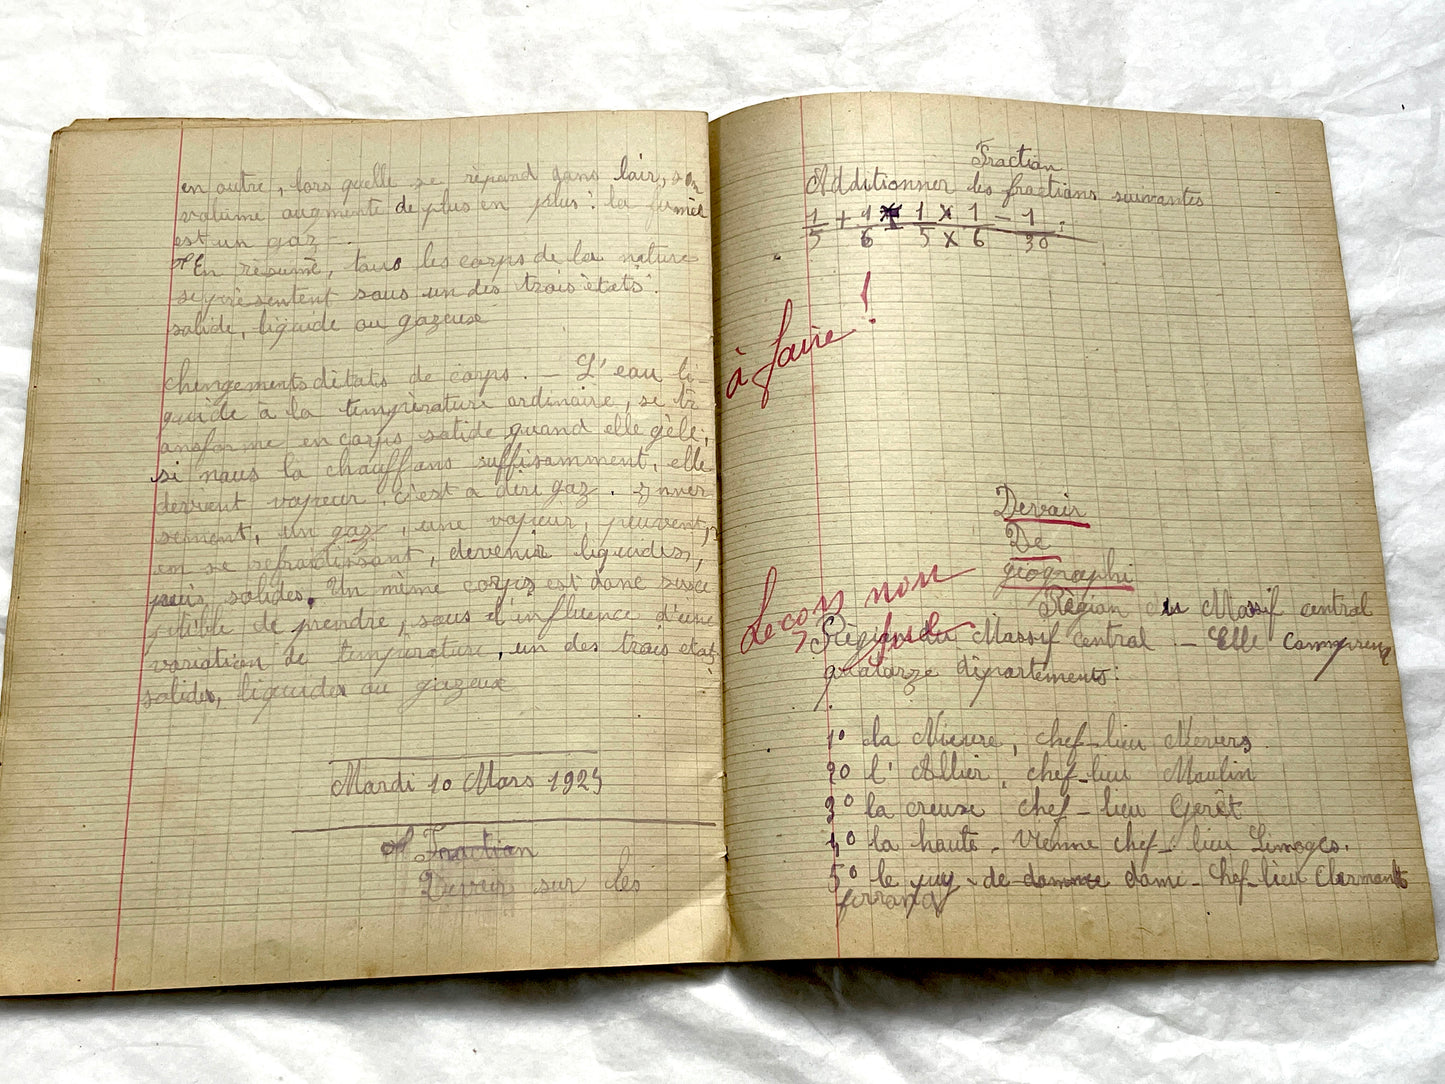 en outre, lors quelle se répand gans lair, son
volume augmente de plus en plus: la fumée
est un gaz
En résumé, tous les corps de la nature
se présentent sous un des trois états:
solide, liquide ou gazeuse
Changements d'états de corps. — L'eau li-
quide à la température ordinaire, se tr
ansforme en corps solide quand elle gèle,
si nous la chauffons suffisamment, elle
devient vapeur, c'est a dire gaz. Inver
sement, un gaz, une vapeur, peuvent,
en se refroidissant, devenir liquides,
puis solides. Un même corps est donc susce
ptible de prendre, sous l'influence d'une
variation de température, un des trois etats
solides, liquides ou gazeux
Mardi 10 Mars 1925
Fraction
Devoir sur les
Fraction
Additionner les fractions suivantes
1/5 + 1/6 1 x 1 - 1
5 x 6 30
à faire!
Devoir
De
géographi
Région du Massif central
Leçon non
sue
Région du Massif central — Elle comprend
quatorze départements:
1° la Nievre, chef-lieu Nevers
2° l'Allier, chef-lieu Moulin
3° la creuse chef-lieu Gerêt
4° la haute-vienne chef-lieu Limoges.
5° le puy-de domme dome-chef-lieu Clermont
ferrand